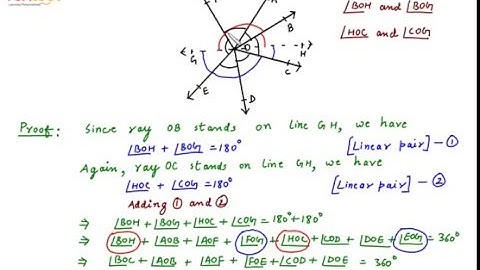 ∠BOH and ∠BOG
∠HOC and ∠COG
F
A
B
O
G
H
C
E
D
Proof: Since ray OB stands on line GH, we have
∠BOH + ∠BOG = 180° [Linear pair] — ①
Again, ray OC stands on line GH, we have
∠HOC + ∠COG = 180° [Linear pair] — ②
Adding ① and ②
⇒ ∠BOH + ∠BOG + ∠HOC + ∠COG = 180° + 180°
⇒ ∠BOH + ∠AOB + ∠AOF + ∠FOG + ∠HOC + ∠COD + ∠DOE + ∠EOG = 360°
⇒ ∠BOC + ∠AOB + ∠AOF + ∠FOE + ∠COD + ∠DOE = 360°